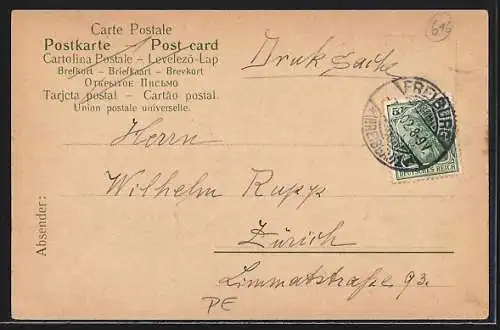 616
Carte Postale
Postkarte Post card
Cartolina Postale - Levelező-Lap
Brefkort - Briefkaart - Brevkort
Открытое Письмо
Tarjeta postal - Cartão postal
Union postale universelle.
Druksache
FREIBURG
(BREISGAU)
5
DEUTSCHES REICH
Herrn
Wilhelm Rupp
Zürich
Limmatstraße 93.
Absender:
PE